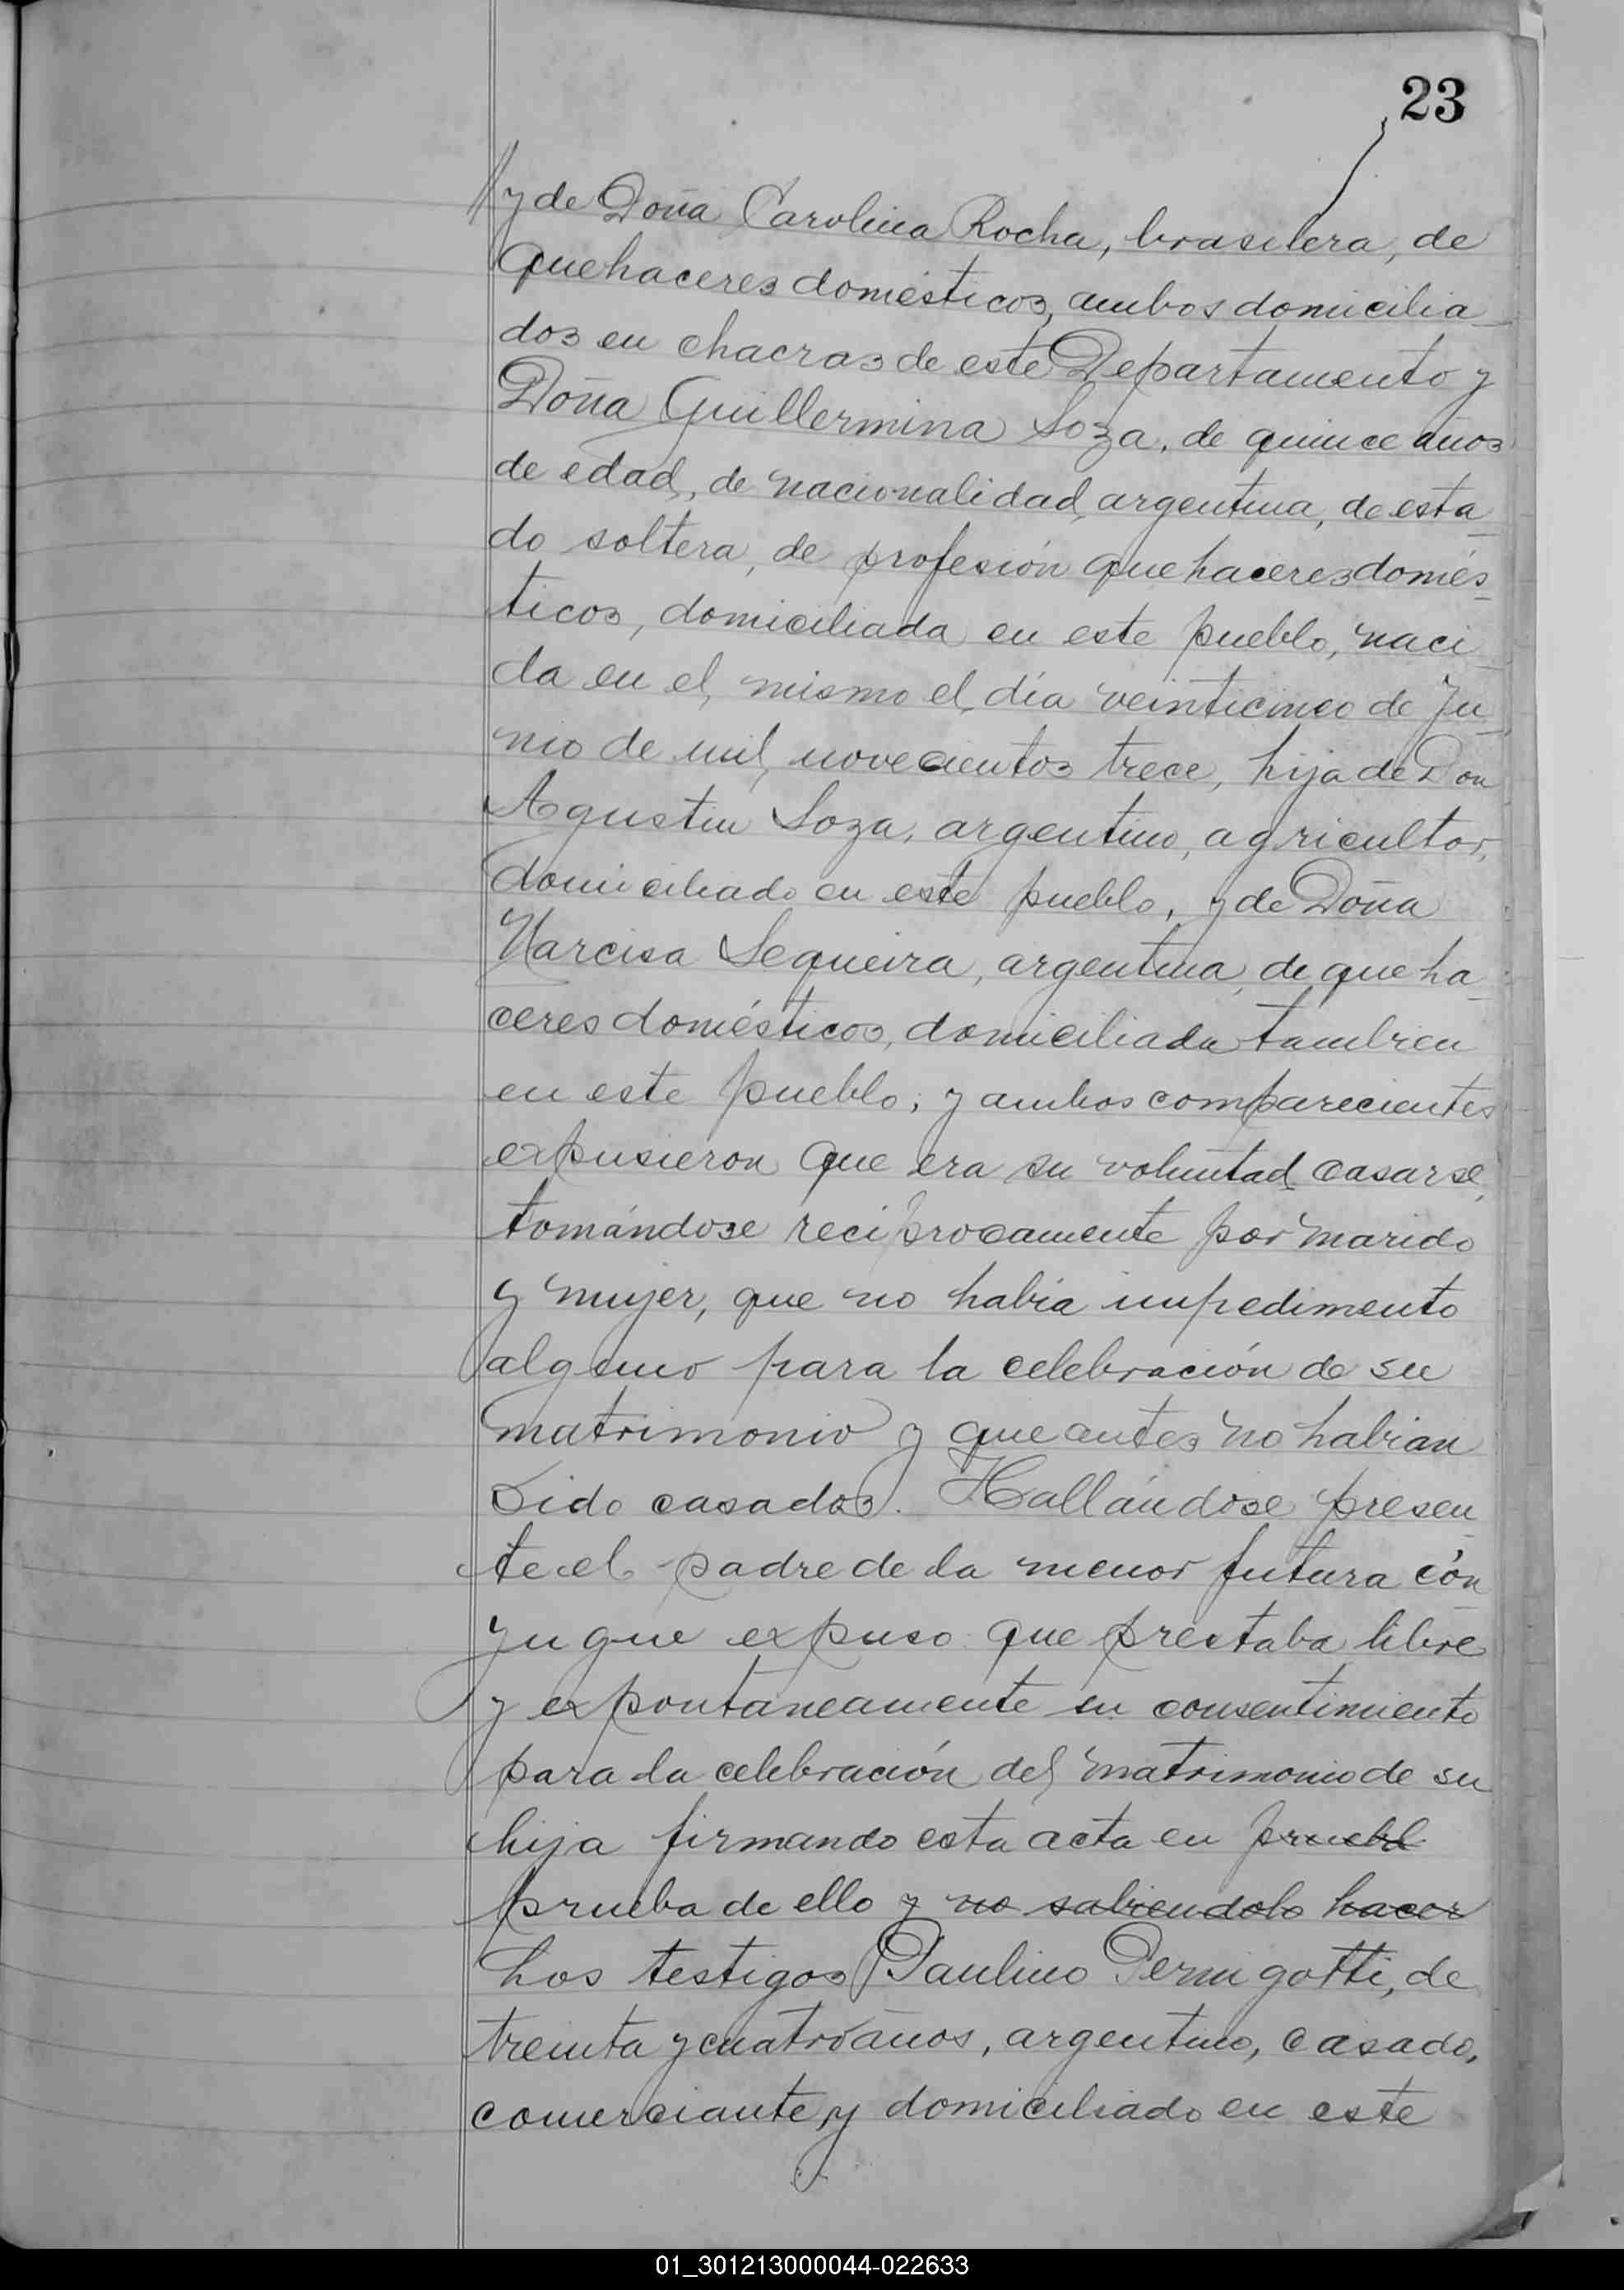 23
y de Doña Carolina Rocha, brasilera, de
quehaceres domésticos, ambos domicilia-
dos en chacras de este Departamento y
Doña Guillermina Soza, de quince años
de edad, de nacionalidad argentina, de esta-
do soltera, de profesión quehaceres domés-
ticos, domiciliada en este pueblo, naci-
da en el mismo el día veinticinco de Ju-
nio de mil novecientos trece, hija de Don
Agustin Soza, argentino, agricultor,
domiciliado en este pueblo, y de Doña
Narcisa Sequeira, argentina, de queha-
ceres domésticos, domiciliada tambien
en este pueblo; y ambos comparecientes
expusieron que era su voluntad casarse,
tomándose reciprocamente por marido
y mujer, que no había impedimento
alguno para la celebración de su
matrimonio y que antes no habian
sido casados. Hallándose presen-
te el padre de la menor futura cón-
yugue expuso que prestaba libre
y expontaneamente su consentimiento
para la celebración del matrimonio de su
hija firmando esta acta en pruebl
prueba de ello y no sabiendolo hacer
Los testigos Paulino Pernigotti, de
treinta y cuatro años, argentino, casado,
comerciante y domiciliado en este
01_301213000044-022633